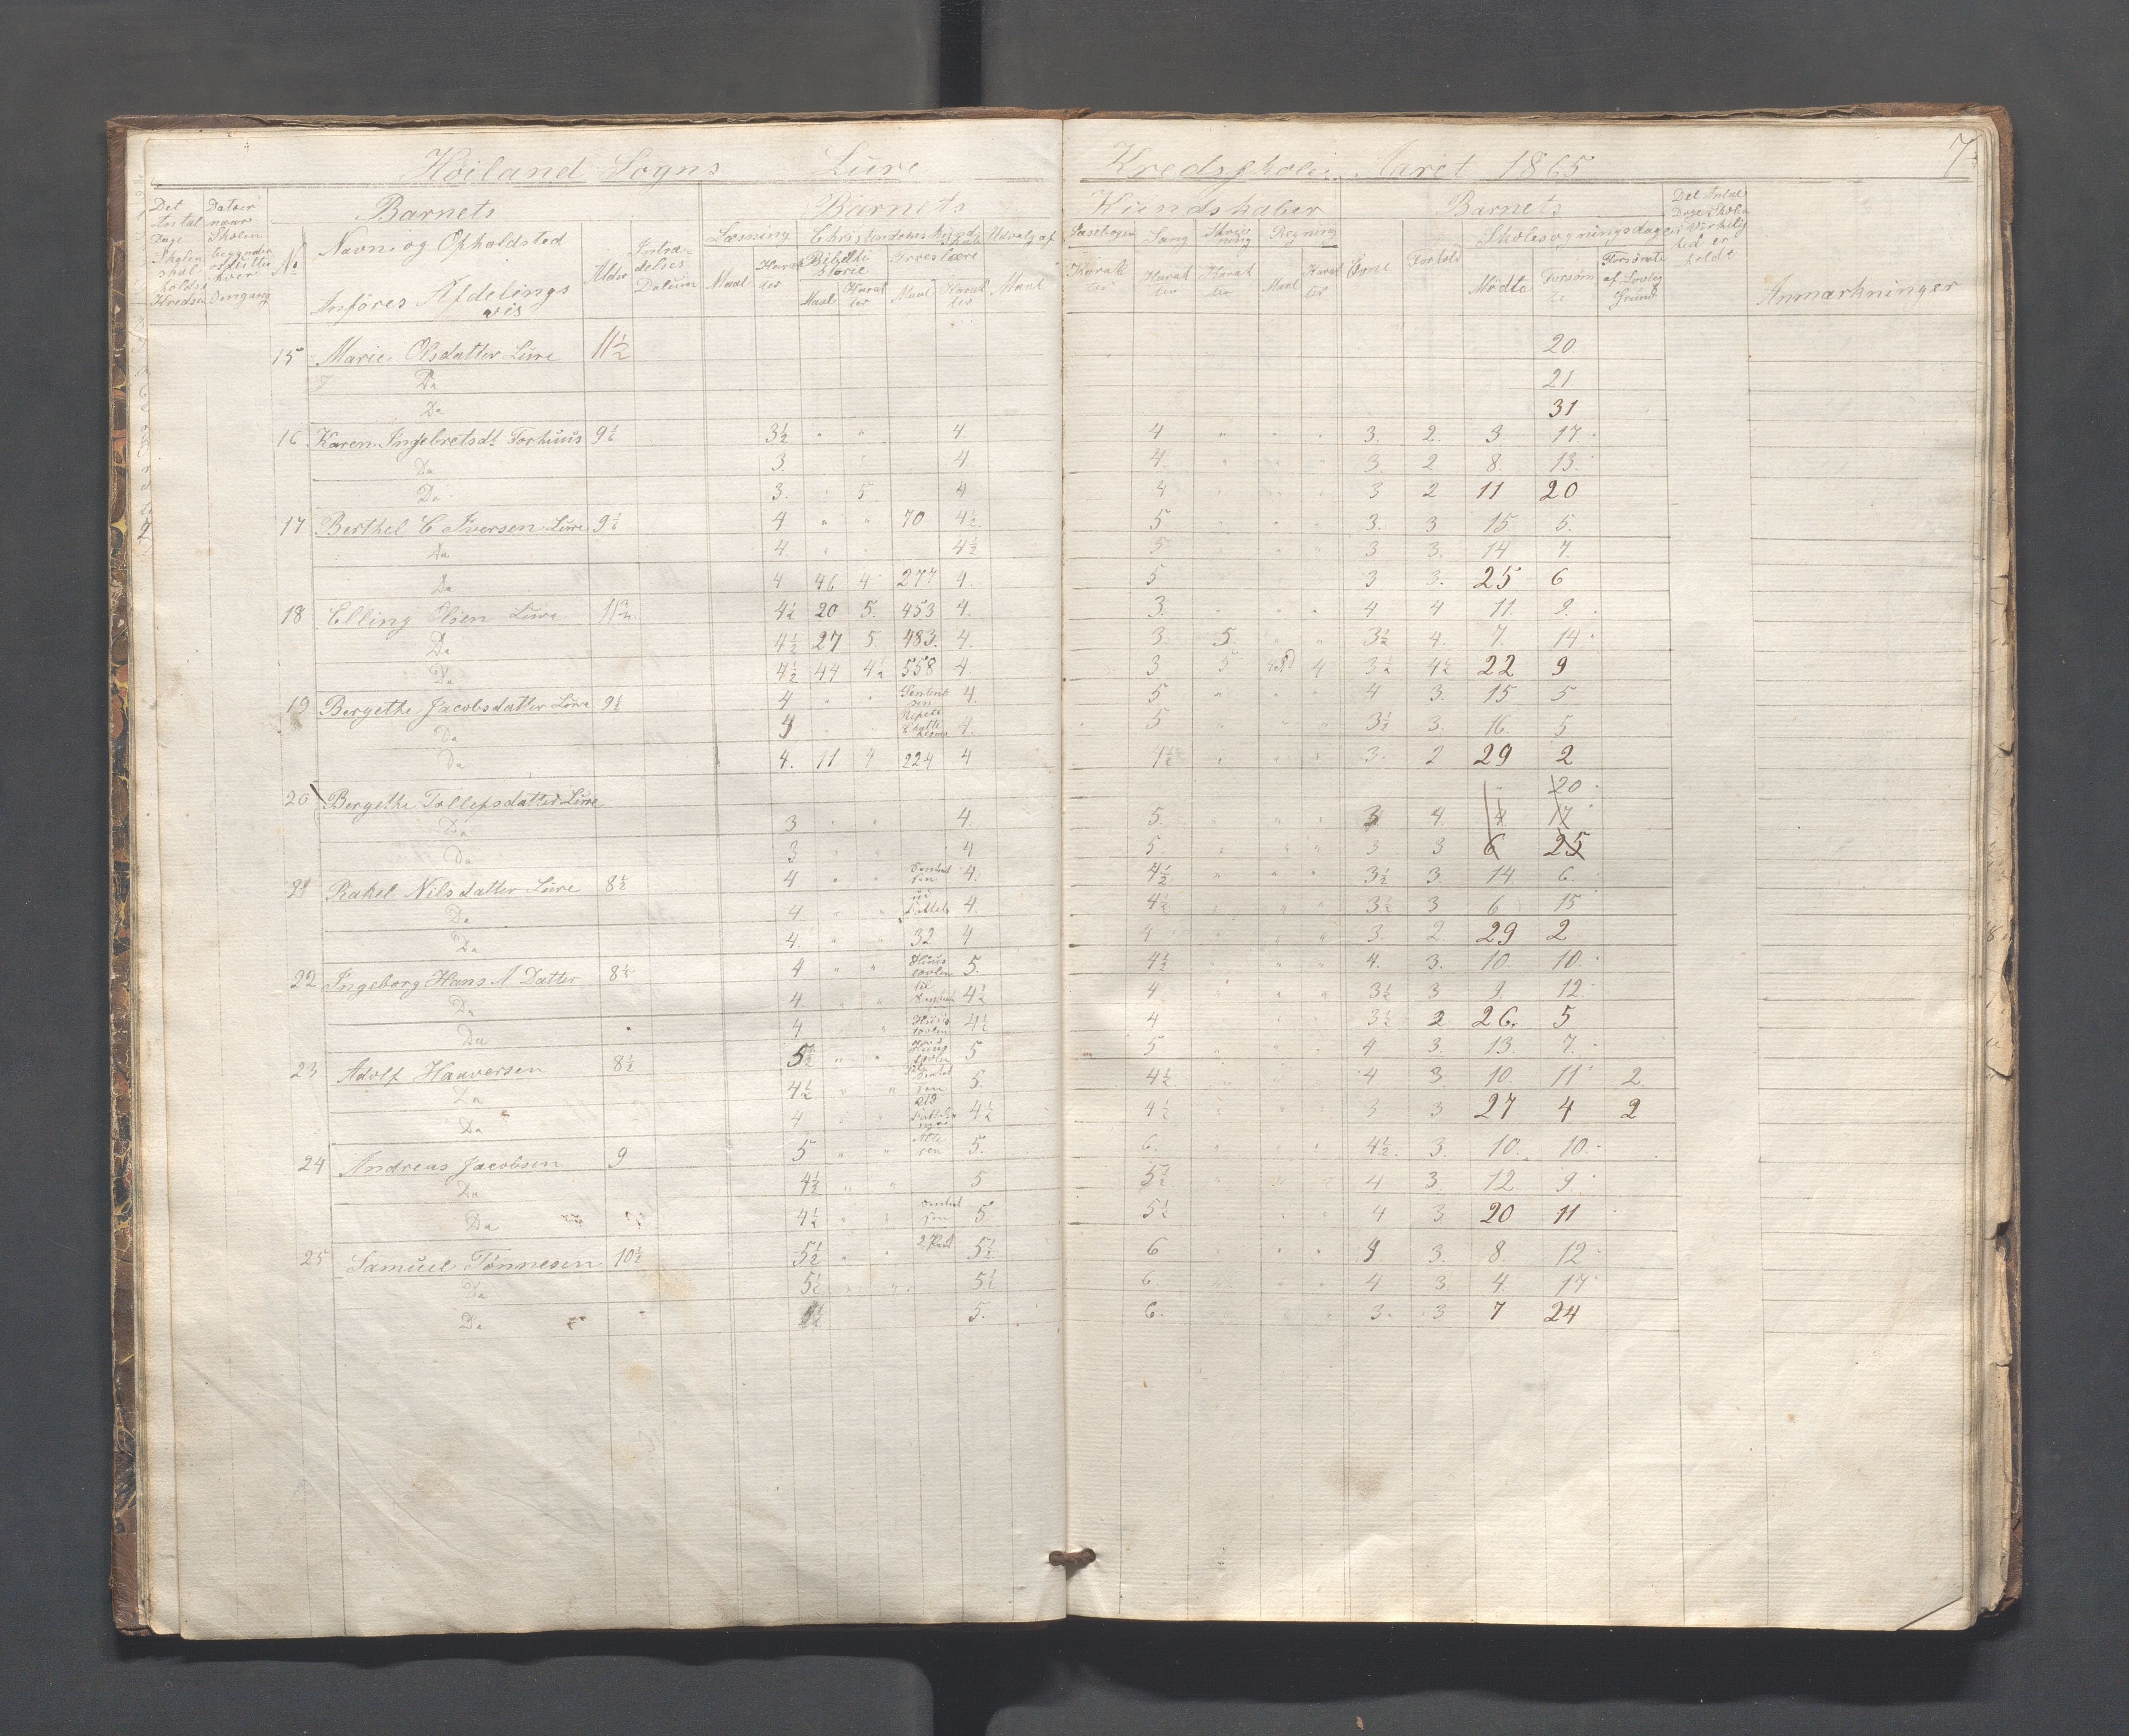 Høiland Sogns Lure Kredsskole Aaret 1865 7
Det Antal Dage Skolen skal holdes i Kredsen
Datoer naar Skolen begynder og slutter hver Omgang
No
Barnets
Navn og Opholdsted
Anføres Afdelingsvis
Alder
Indtrædelses Datum
Barnets Kundskaber
Læsning Maal Karakter
Christendomskundskab
Bibelhistorie Maal Karakter
Troeslære Maal Karakter
Udvalg af Maal
Læsebogen Karakter
Sang Karakter
Skrivning Karakter
Regning Maal Karakter
Barnets
Evne Forhold
Skolesøgningsdage
Mødte Forsømte Forsømte af Lovlig Grund
Det Antal Dage Skolen i Virkelighed er holdt
Anmærkninger
15 Marie Olsdatter Lure 11½ 20
Da 21
Da 31
16 Karen Ingebretsdt Torhuus 9½ 3½ " " 4 4 " " " 3. 2. 3 17
Da 3. 4 4. 3 2 8. 13
Da 3. " 5 4 4 3 2 11 20
17 Berthel C Iversen Lure 9½ 4 " " 70 4½ 5 3. 3 15 5.
Da 4 4½ 5 3 3. 14 7.
Da 4 46 4 277 4. 5 3 3. 25 6
18 Elling Olsen Lure 4½ 20 5. 453 4. 3. 4 4 11 9.
Da 4½ 27 5 483. 4. 3 5. " " 3½ 4. 7. 14
Da 4½ 44 4½ 558 4. 3 5 4 3½ 4½ 22 9
19 Bergethe Jacobsdatter Lure 9½ 4 " 4. 5 " " " 4 3. 15 5
Da 4 4. 5 " " " 3½ 3. 16 5
Da 4. 11 4 224 4 4½ " " " 3. 2 29 2
20 Bergethe Tollefsdatter Lure " 20
Da 3 " " 4. 5. 3 4. 4 17
Da 3 4 5 3 3 6 25
21 Rakel Nilsdatter Lure 8½ 4 " " 4. 4½ " " " 3½ 3. 14 6
Da 4 " 4. 4½ 3½ 3 6 15
Da 4. " " 32 4 4 3. 2. 29 2
22 Ingeborg Hans A Datter 8½ 4 " " 5. 4½ 4. 3. 10. 10
Da 4 4½ 4 3½ 3 9. 12
Da 4 4½ 4 3½ 2 26. 5
23 Adolf Haaversen 8½ 5½ " " 5 5 4 3. 13. 7.
Da 4½ " " 5. 4½ 4 3. 10. 11 2
Da 4 4½ 4½ 3 3 27 4 2
24 Andreas Jacobsen 9 5 " " 5. 6. 4½ 3. 10. 10
Da 4½ " " 5 5½ 4 3. 12 9
Da 4½ 5 5½ 4 3 20 11
25 Samuel Tønnesen 10½ 5½ " " 5½ 6 4 3. 8. 12
Da 5½ 5½ 6 4 3 4. 17
Da 5. 6. 3. 3 7 24